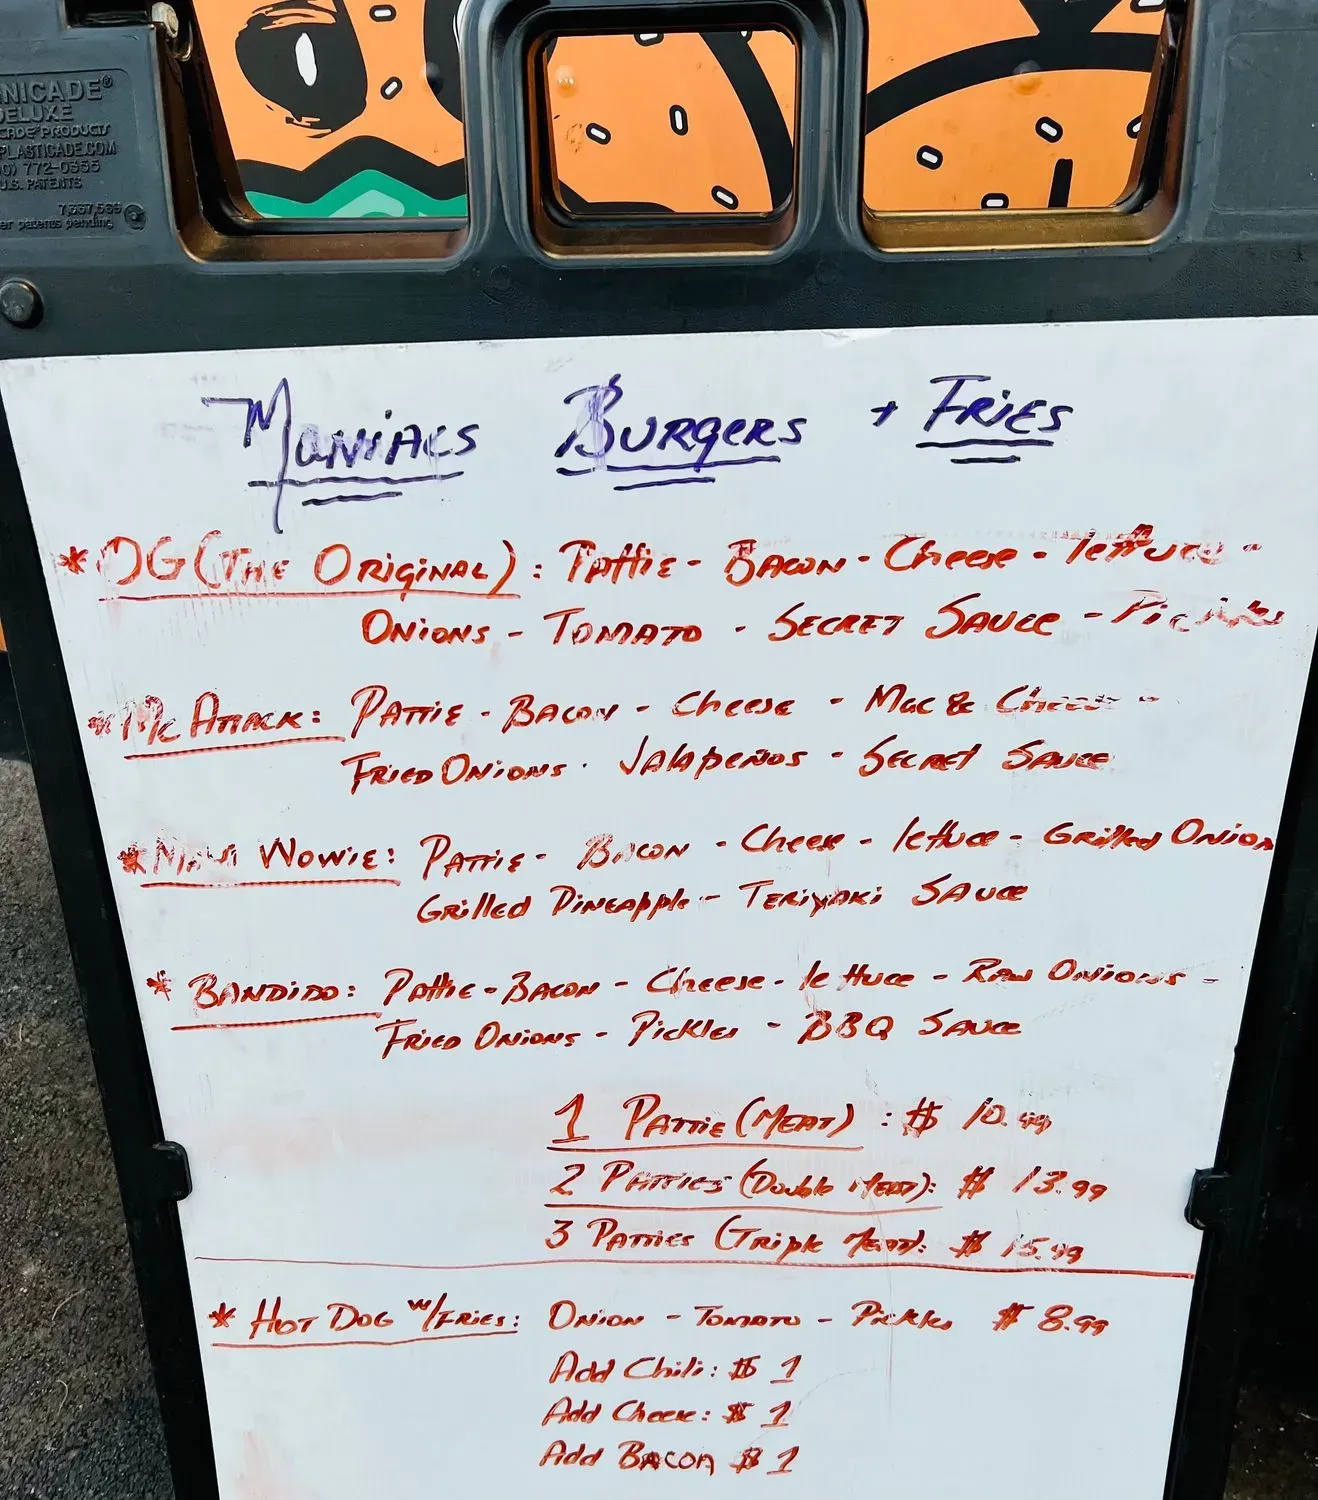 NICADE®
DELUXE
CADE PRODUCTS
PLASTICADE.COM
0) 772-0355
U.S. PATENTS
7,337,569
er patents pending
Maniacs Burgers + Fries
* OG (The Original) : Pattie - Bacon - Cheese - lettuce -
Onions - Tomato - Secret Sauce - Pickles
* Mc Attack: Pattie - Bacon - Cheese - Mac & Cheese -
Fried Onions - Jalapeños - Secret Sauce
* Maui Wowie: Pattie - Bacon - Cheese - lettuce - Grilled Onion
Grilled Pineapple - Teriyaki Sauce
* Bandido: Pattie - Bacon - Cheese - lettuce - Raw Onions -
Fried Onions - Pickles - BBQ Sauce
1 Pattie (Meat) : $ 10.99
2 Patties (Double Meat): $ 13.99
3 Patties (Triple Meat): $ 15.99
* Hot Dog w/Fries: Onion - Tomato - Pickles $ 8.99
Add Chili: $ 1
Add Cheese: $ 1
Add Bacon $ 1